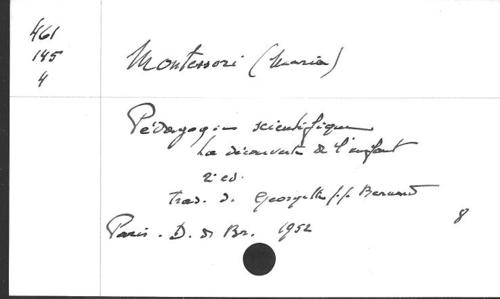 461
145
4
Montessori (Maria)
Pédagogie scientifique
La découverte de l'enfant
2e ed.
Trad. d. Georgette J. J. Bernard
Paris. D. de Br. 1952
8